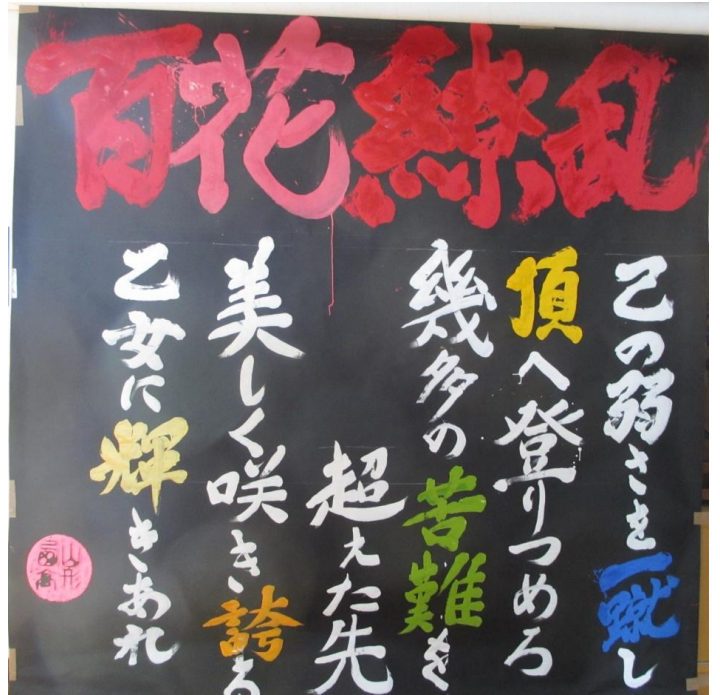 百花繚乱
己の弱さを一蹴し
頂へ登りつめろ
幾多の苦難を
超えた先
美しく咲き誇る
乙女に輝きあれ
山形